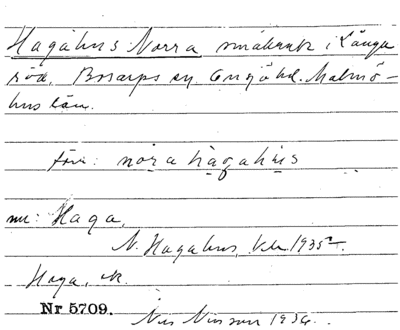 Hagahus Norra småbruk i Långa
röd, Bosarps sn. Onsjö hd. Malmö-
hus län.
förr: nora hagahus
nu: Haga.
N. Hagahus, 1935
Haga, N.
Nr 5709.
Nils Nilsson 1936.